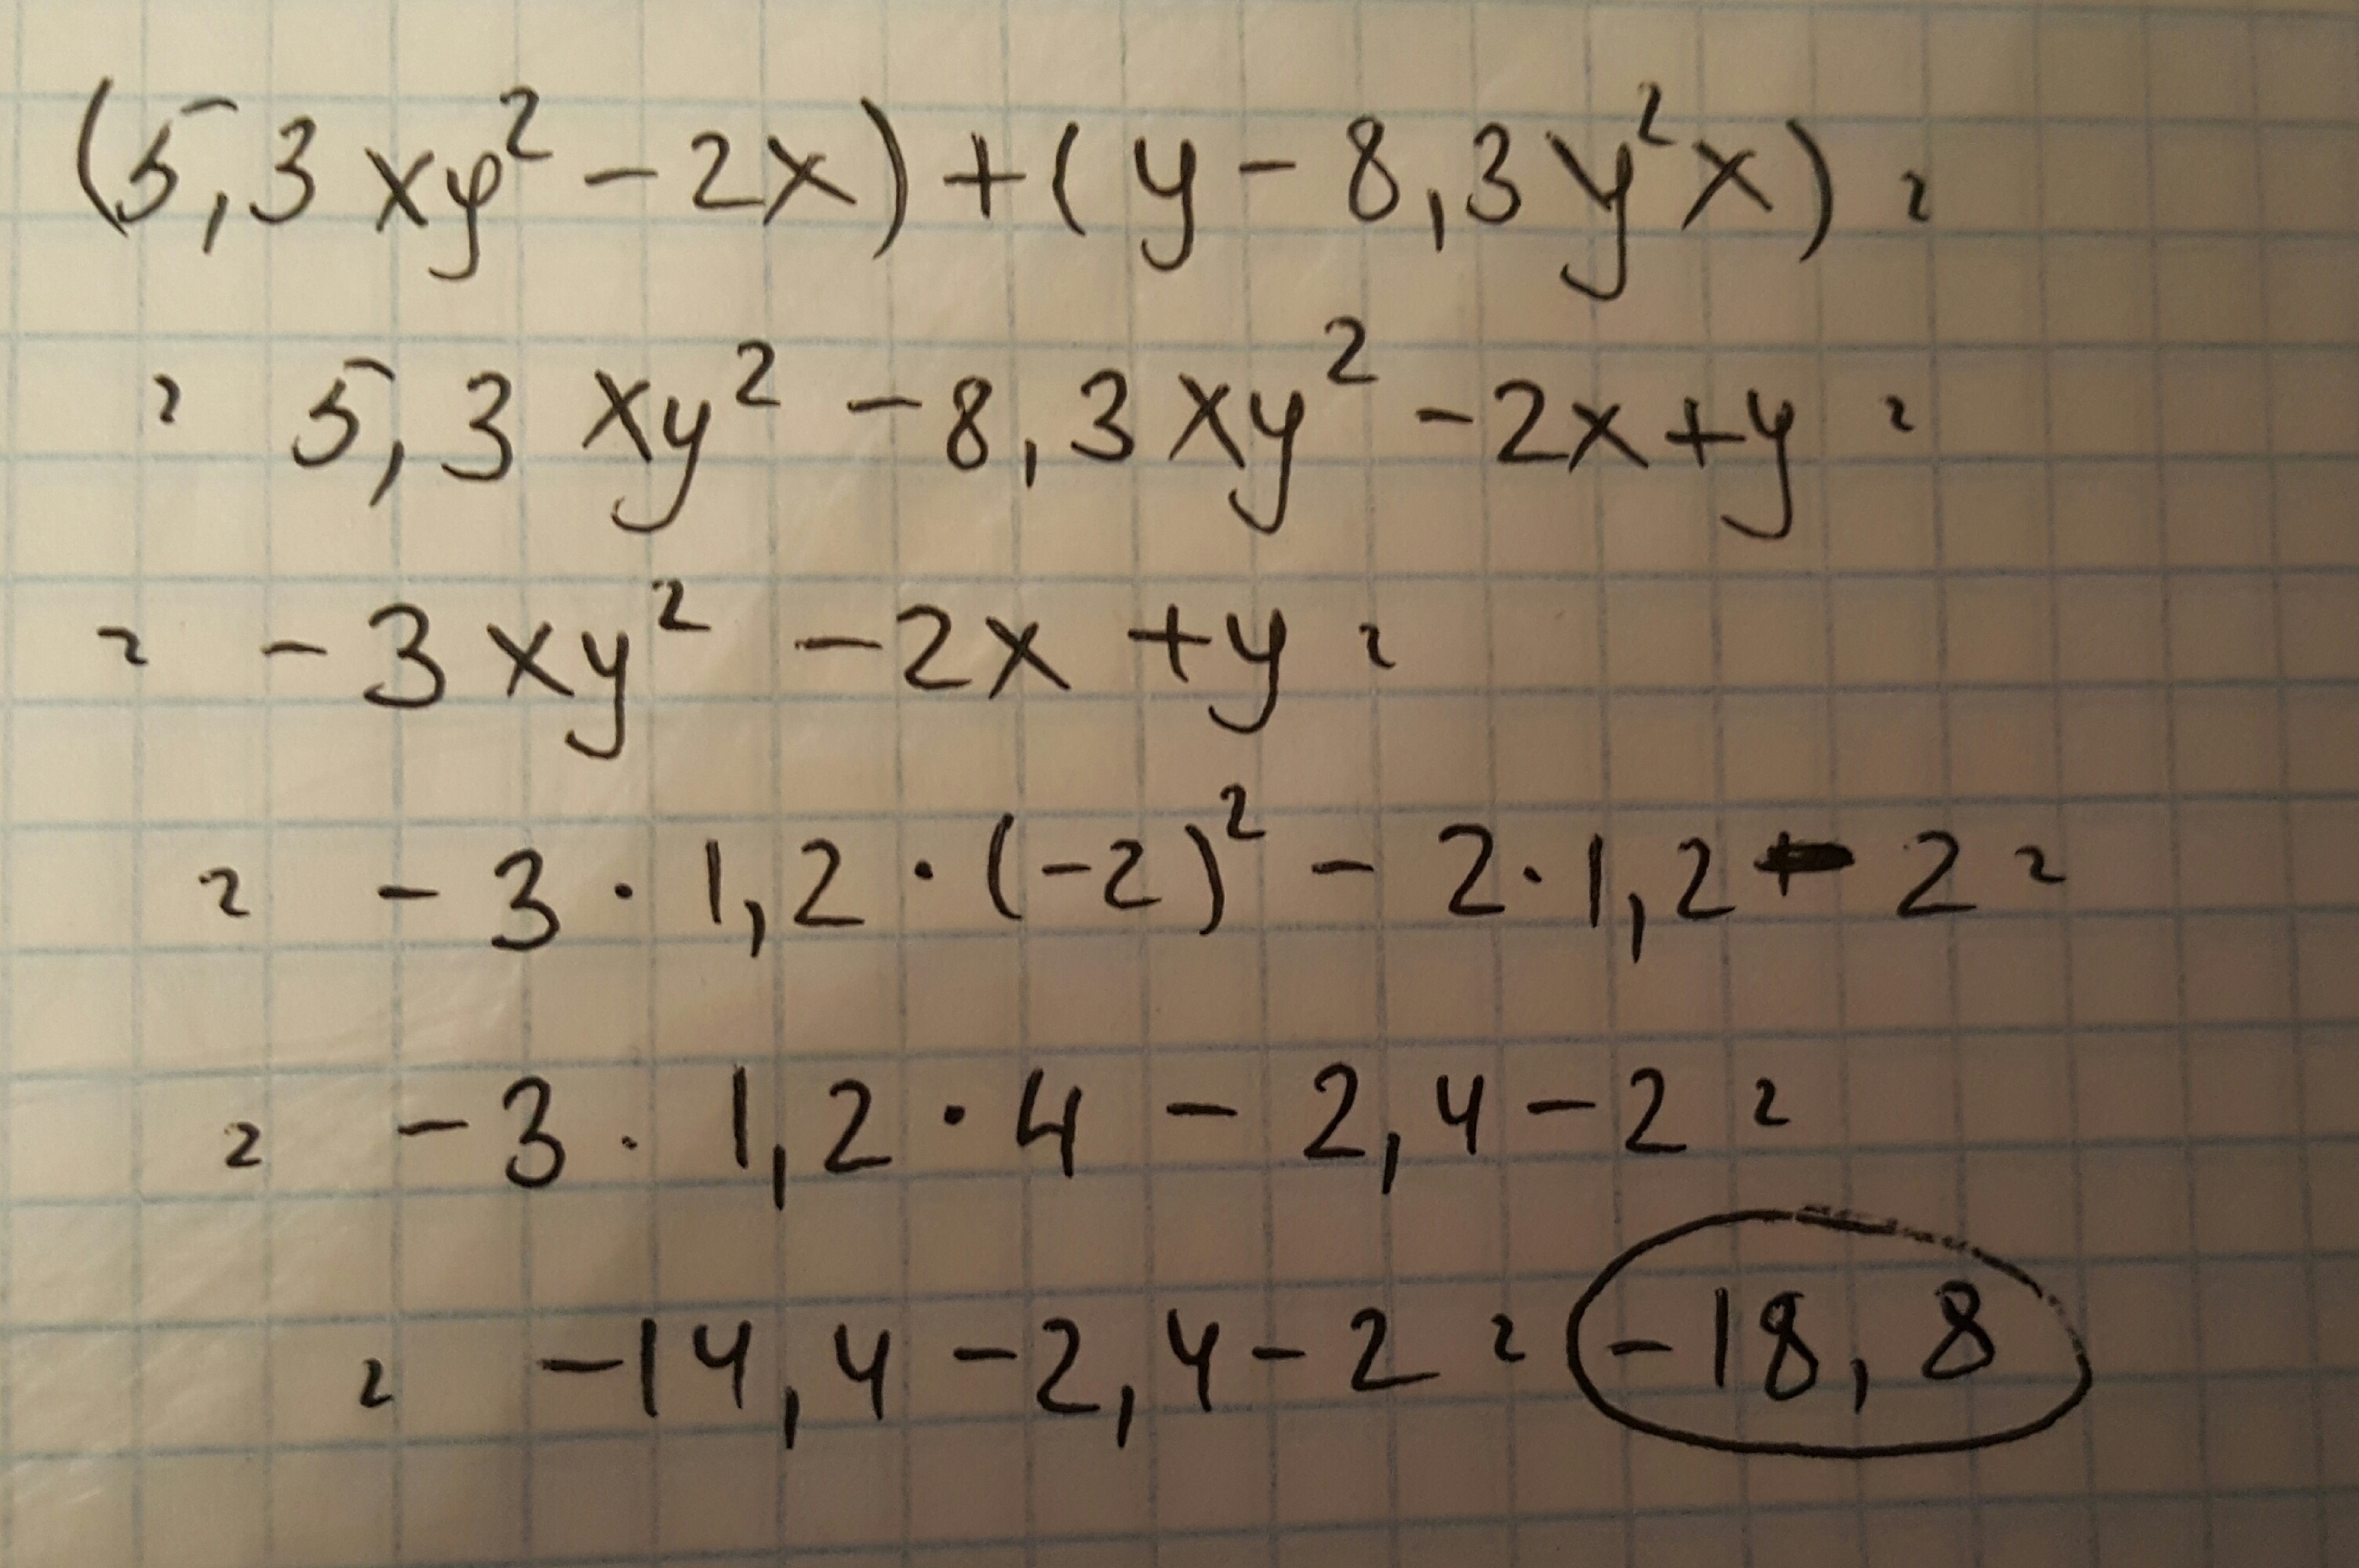 (5,3xy² - 2x) + (y - 8,3y²x) =
= 5,3xy² - 8,3xy² - 2x + y =
= -3xy² - 2x + y =
= -3 · 1,2 · (-2)² - 2 · 1,2 - 2 =
= -3 · 1,2 · 4 - 2,4 - 2 =
= -14,4 - 2,4 - 2 = -18,8